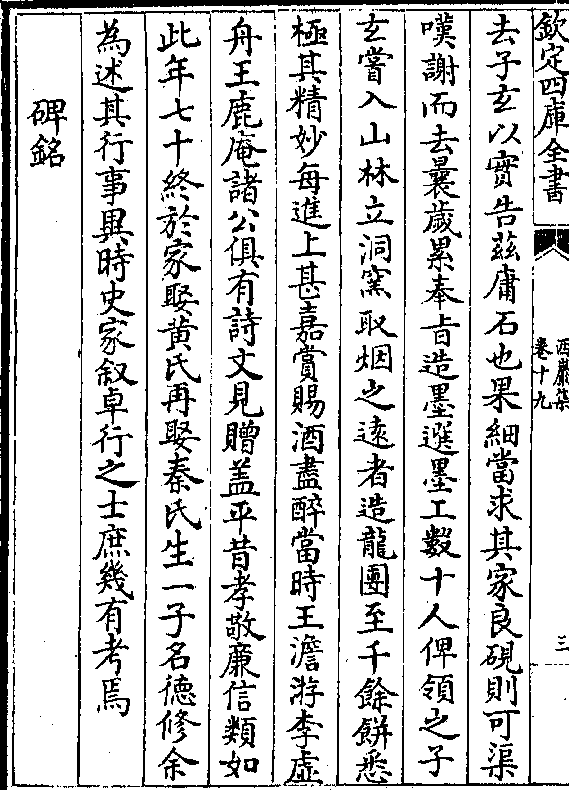 欽定四庫全書
西巖集
卷十九
三
去子玄以實告茲庸石也果細當求其家良硯則可渠
嘆謝而去曩歲累奉旨造墨選墨工數十人俾領之子
玄嘗入山林立洞窯取烟之遠者造龍團至千餘餅悉
極其精妙每進上甚嘉賞賜酒盡醉當時王澹游李虛
舟王鹿庵諸公俱有詩文見贈盖平昔孝敬廉信類如
此年七十終於家娶黄氏再娶秦氏生一子名德修余
為述其行事異時史家叙卓行之士庶幾有考焉
碑銘